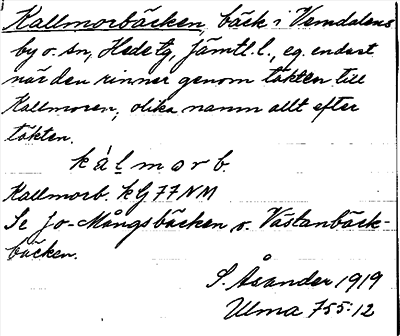 Kallmorbäcken, bäck i Vemdalens
by o. sn, Hede tg, Jämtl. l., eg. endast
när den rinner genom täkten till
Kallmoren; olika namn allt efter
täkten.
kálmorb.
Kallmorb. kG77NM
Se Jo-Mångsbäcken o. Västanbäck-
bäcken.
S. Åsander 1919
Ulma 755:12